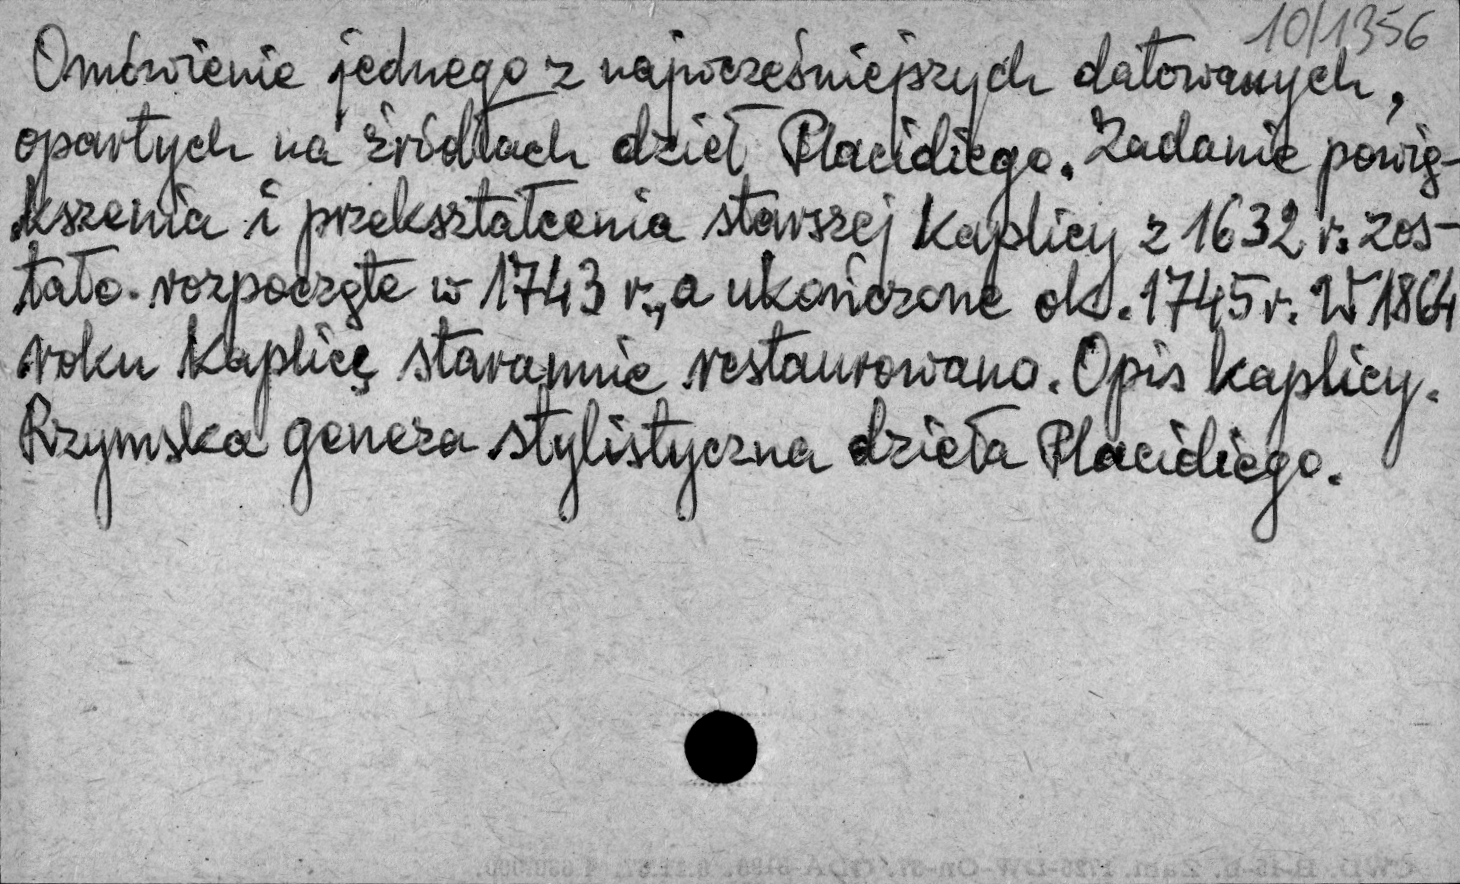 10/1356
Omówienie jednego z najwcześniejszych datowanych,
opartych na źródłach dzieł Placidiego. Zadanie powię-
kszenia i przekształcenia starszej kaplicy z 1632 r. zos-
tało rozpoczęte w 1743 r., a ukończone ok. 1745 r. W 1864
roku kaplicę starannie restaurowano. Opis kaplicy.
Rzymska geneza stylistyczna dzieła Placidiego.